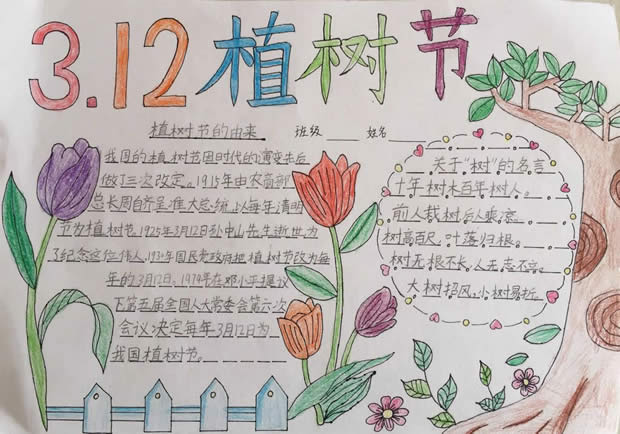 3.12植树节
植树节的由来 班级 姓名
我国的植树节因时代的演变先后
做了三次改定。1915年由农商部
总长周自齐呈准大总统,以每年清明
节为植树节。1925年3月12日孙中山先生逝世,为
了纪念这位伟人,1930年国民党政府把植树节改为每
年的3月12日。1979年在邓小平提议
下第五届全国人大常委会第六次
会议决定每年3月12日为
我国植树节。
关于“树”的名言
十年树木百年树人。
前人栽树后人乘凉。
树高百尺,叶落归根。
树无根不长,人无志不立。
大树招风,小树易折。